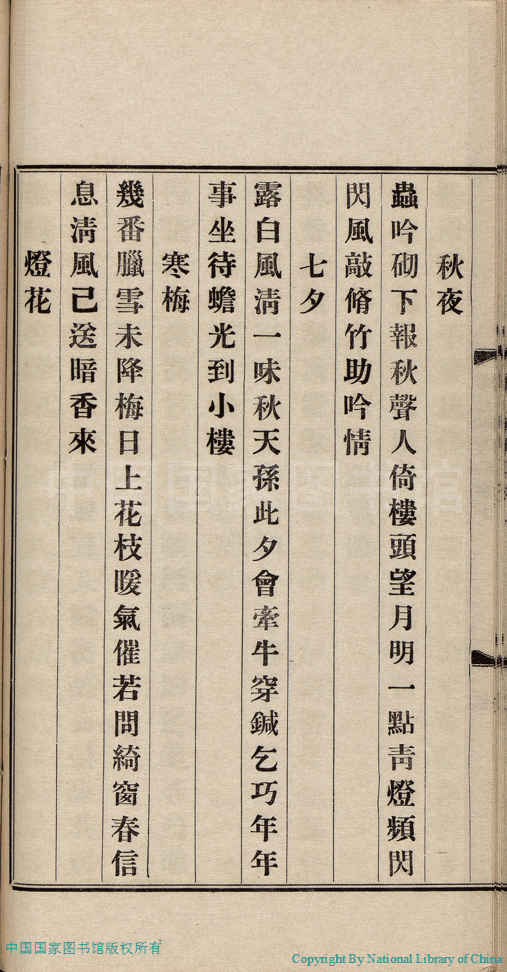 秋夜
蟲吟砌下報秋聲人倚樓頭望月明一點靑燈頻閃
閃風敲脩竹助吟情
七夕
露白風淸一味秋天孫此夕會牽牛穿鍼乞巧年年
事坐待蟾光到小樓
寒梅
幾番臘雪未降梅日上花枝暖氣催若問綺窗春信
息淸風已送暗香來
燈花
中国国家图书馆
中国国家图书馆版权所有
Copyright By National Library of China